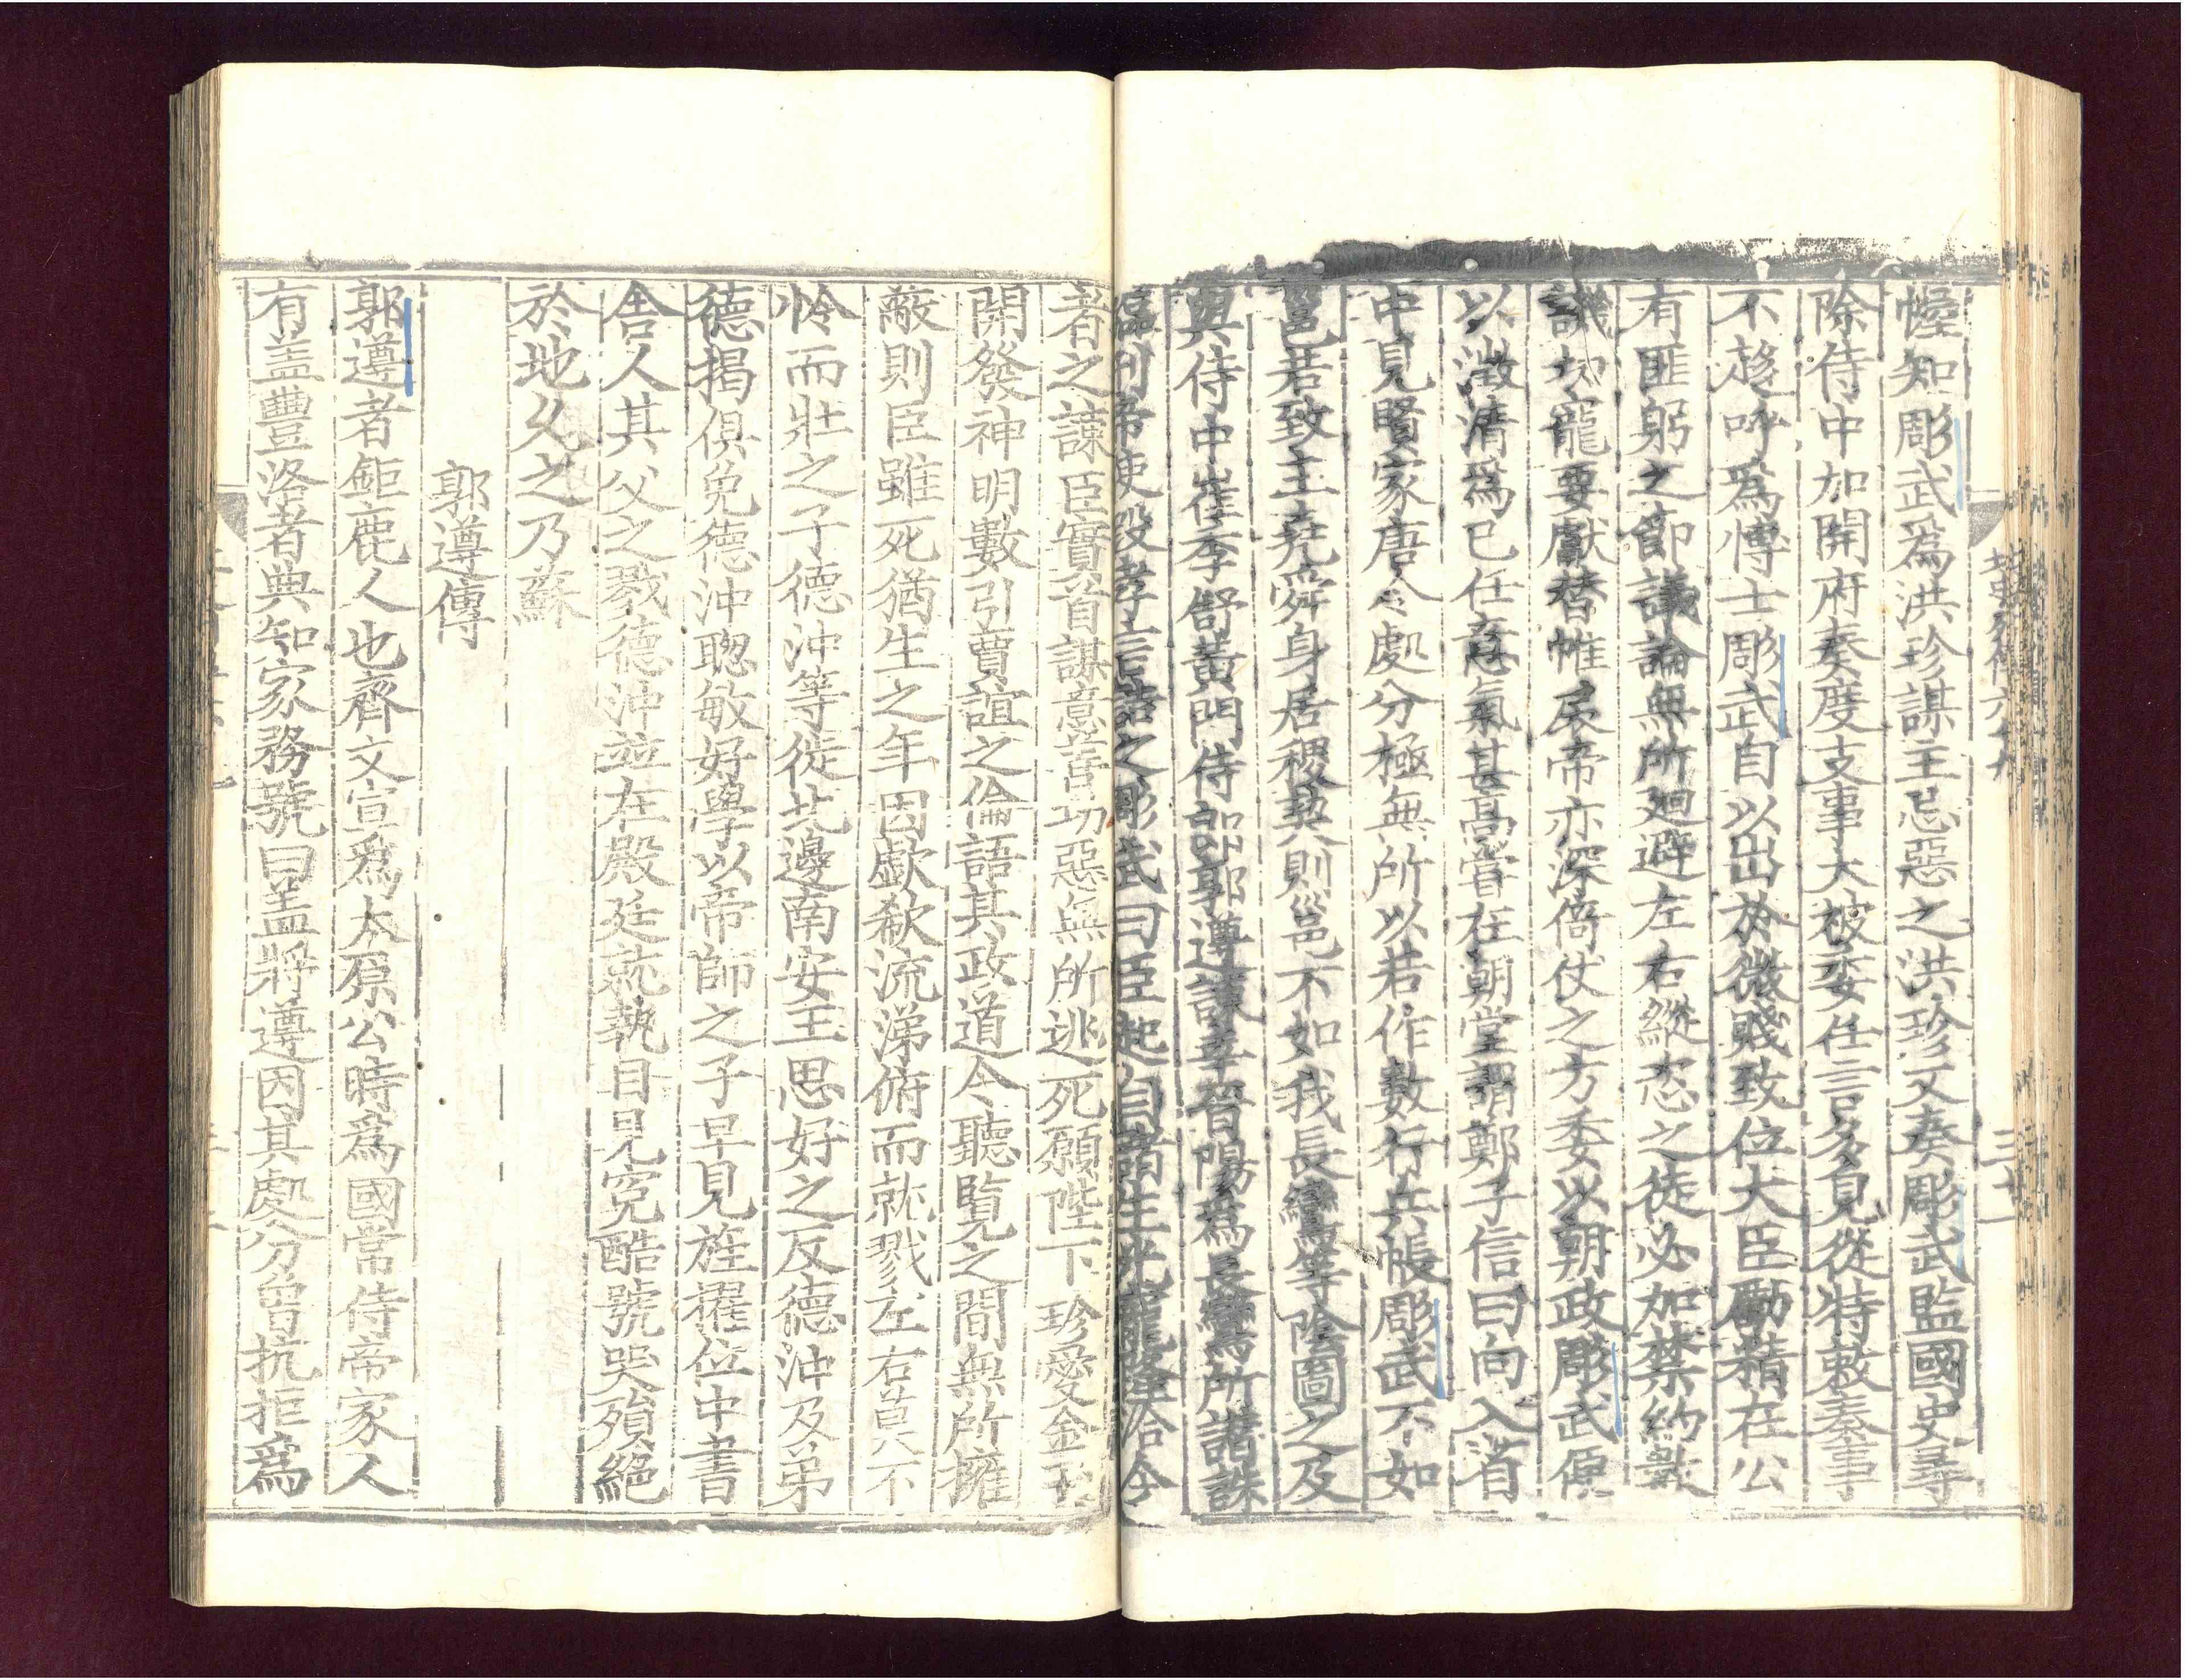 幄知彫武爲洪珍謀主忌惡之洪珍又奏彫武監國史尋
除侍中加開府奏度支事大被委任言多見從特敕奏事
不趍呼爲博士彫武自以出於微賤致位大臣勵精在公
有匪躬之節議論無所廻避左右縱恣之徒必加禁約數
譏切寵要獻替帷扆帝亦深倚仗之方委以朝政彫武便
以澂清爲已任意氣甚高嘗在朝堂謂鄭子信曰向入省
中見賢家唐令處分極無所以若作數行兵帳彫武不如
邕若致主堯舜身居稷契則邕不如我長鸞等陰圖之及
與侍中崔季舒黃門侍郎郭遵諫幸晉陽爲長鸞所譖誅
臨刑帝使段孝言詰之彫武曰臣起自諸生光寵隆洽今
者之諫臣實首謀意善功惡無所逃死願陛下珍愛金玉
開發神明數引賈誼之倫語其政道令聽覽之間無所擁
蔽則臣雖死猶生之年因歔欷流涕俯而就戮左右莫不
怜而壯之子德沖等徙北邊南安王思好之反德沖及弟
德揭俱免德沖聰敏好學以帝師之子早見旌擢位中書
舍人其父之戮德沖並在殿廷就執目見寃酷號哭殞絕
於地久之乃蘇
郭遵傳
郭遵者鉅鹿人也齊文宣爲太原公時爲國常侍帝家人
有盖豐洛者典知家務號曰盖將遵因其處分曾抗拒爲